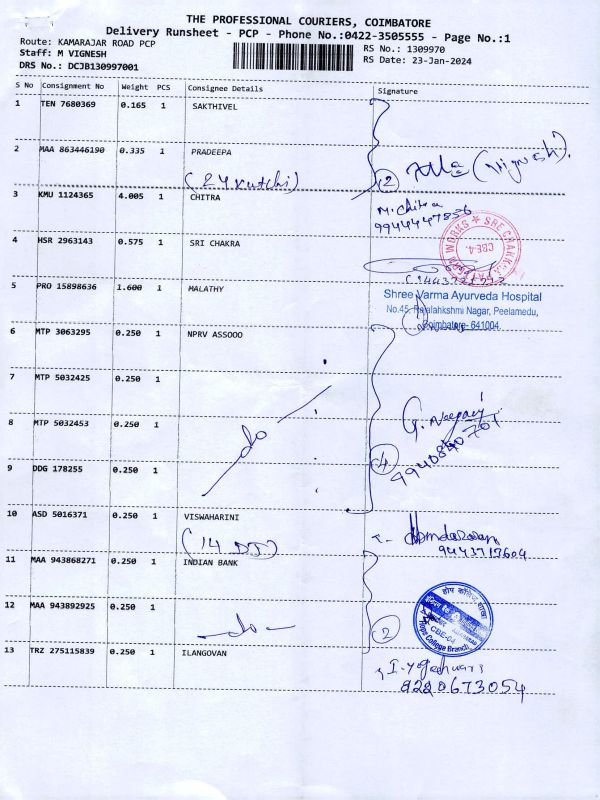 THE PROFESSIONAL COURIERS, COIMBATORE
Delivery Runsheet - PCP - Phone No.:0422-3505555 - Page No.:1
Route: KAMARAJAR ROAD PCP
RS No.: 1309970
Staff: M VIGNESH
RS Date: 23-Jan-2024
DRS No.: DCJB130997001
S No Consignment No Weight PCS Consignee Details Signature
1 TEN 7680369 0.165 1 SAKTHIVEL
2 MAA 863446190 0.335 1 PRADEEPA
(Vignesh).
2
3 KMU 1124365 4.005 1 CHITRA
M. Chitra
9944447856
4 HSR 2963143 0.575 1 SRI CHAKRA
WORKS ★ SRE CHAKRA
CBE-4.
5 PRO 15898636 1.600 1 MALATHY
Shree Varma Ayurveda Hospital
No.45, Rajalakshmi Nagar, Peelamedu,
Coimbatore- 641004.
6 MTP 3063295 0.250 1 NPRV ASSOOO
7 MTP 5032425 0.250 1
8 MTP 5032453 0.250 1
do
4
9 DDG 178255 0.250 1
10 ASD 5016371 0.250 1 VISWAHARINI
9443717604
11 MAA 943868271 0.250 1 INDIAN BANK
12 MAA 943892925 0.250 1
-do-
2
होप कॉलेज शाखा
CBE-04
Hope College Branch
13 TRZ 275115839 0.250 1 ILANGOVAN
I. Yogeshwari
9220673054